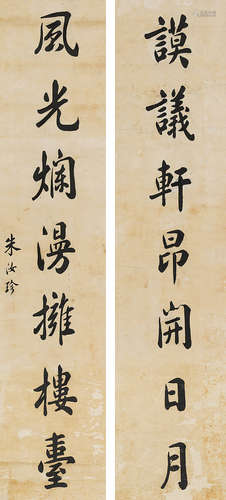 謨議軒昂開日月
風光爛漫擁樓臺
朱汝珍